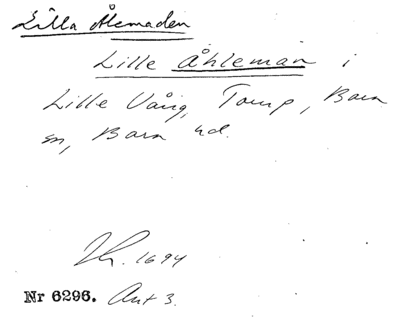 Lilla Ålemaden
Lille Åhlemän i
Lille Vång, Torup, Bara
sn, Bara hd.
Jb. 1694
Nr 6296. Ant 3.